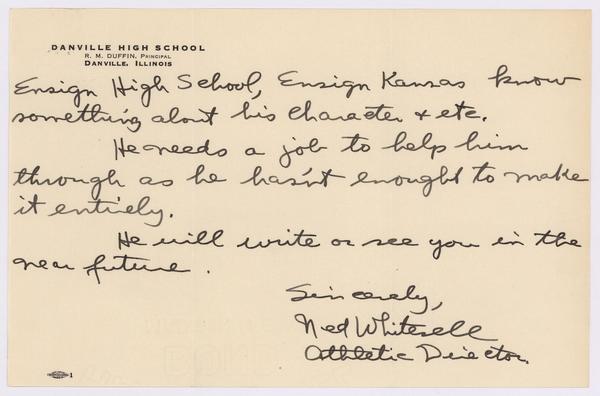 DANVILLE HIGH SCHOOL
R. M. DUFFIN, PRINCIPAL
DANVILLE, ILLINOIS
Ensign High School, Ensign Kansas know
something about his character & etc.
He needs a job to help him
through as he hasn't enought to make
it entirely.
He will write or see you in the
near future.
Sincerely,
Ned Whitesell
Athletic Director.
1